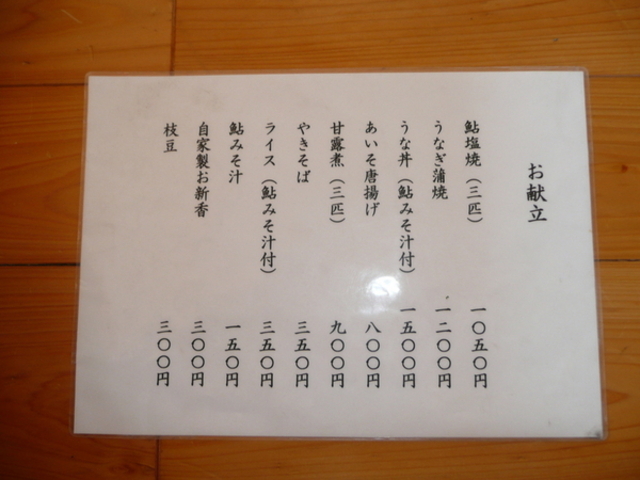 お献立
鮎塩焼（三匹）　一〇五〇円
うなぎ蒲焼　一二〇〇円
うな丼（鮎みそ汁付）　一五〇〇円
あいそ唐揚げ　八〇〇円
甘露煮（三匹）　九〇〇円
やきそば　三五〇円
ライス（鮎みそ汁付）　三五〇円
鮎みそ汁　一五〇円
自家製お新香　三〇〇円
枝豆　三〇〇円